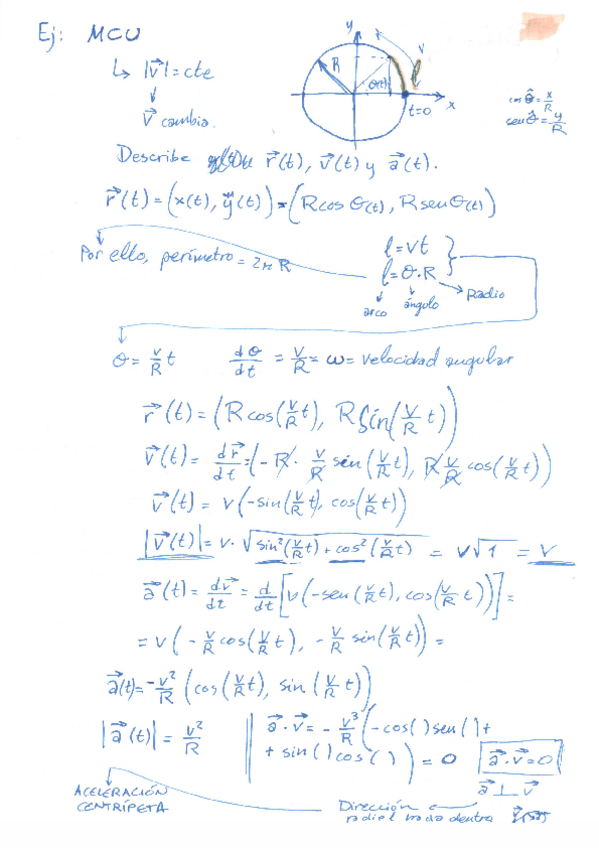 Ej: MCU
↳ |v⃗| = cte
↓
v⃗ cambia.
y
R
θ(t)
v
l
t=0
x
cos θ̂ = x/R
sen θ̂ = y/R
Describe r⃗(t), v⃗(t) y a⃗(t).
r⃗(t) = (x(t), y(t)) = (R cos θ(t), R sen θ(t))
Por ello, perímetro = 2π R
l = vt
l = θ·R
arco ángulo Radio
θ = v/R t dθ/dt = v/R = ω = velocidad angular
r⃗(t) = (R cos(v/R t), R sin(v/R t))
v⃗(t) = dr⃗/dt = (-R · v/R sin(v/R t), R v/R cos(v/R t))
v⃗(t) = v(-sin(v/R t), cos(v/R t))
|v⃗(t)| = v · √(sin²(v/R t) + cos²(v/R t)) = v√1 = v
a⃗(t) = dv⃗/dt = d/dt [v(-sen(v/R t), cos(v/R t))] =
= v(-v/R cos(v/R t), -v/R sin(v/R t)) =
a⃗(t) = -v²/R (cos(v/R t), sin(v/R t))
|a⃗(t)| = v²/R
a⃗ · v⃗ = -v³/R (-cos( )sen( ) +
+ sin( )cos( )) = 0
a⃗·v⃗=0
a⃗ ⊥ v⃗
ACELERACIÓN
CENTRÍPETA
Dirección
radial hacia dentro